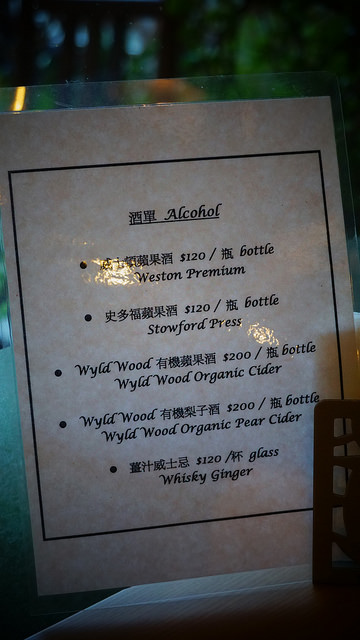 酒單 Alcohol
頓蘋果酒 $120 / 瓶 bottle
Weston Premium
史多福蘋果酒 $120 / 瓶 bottle
Stowford Press
Wyld Wood 有機蘋果酒 $200 / 瓶 bottle
Wyld Wood Organic Cider
Wyld Wood 有機梨子酒 $200 / 瓶 bottle
Wyld Wood Organic Pear Cider
薑汁威士忌 $120 /杯 glass
Whisky Ginger